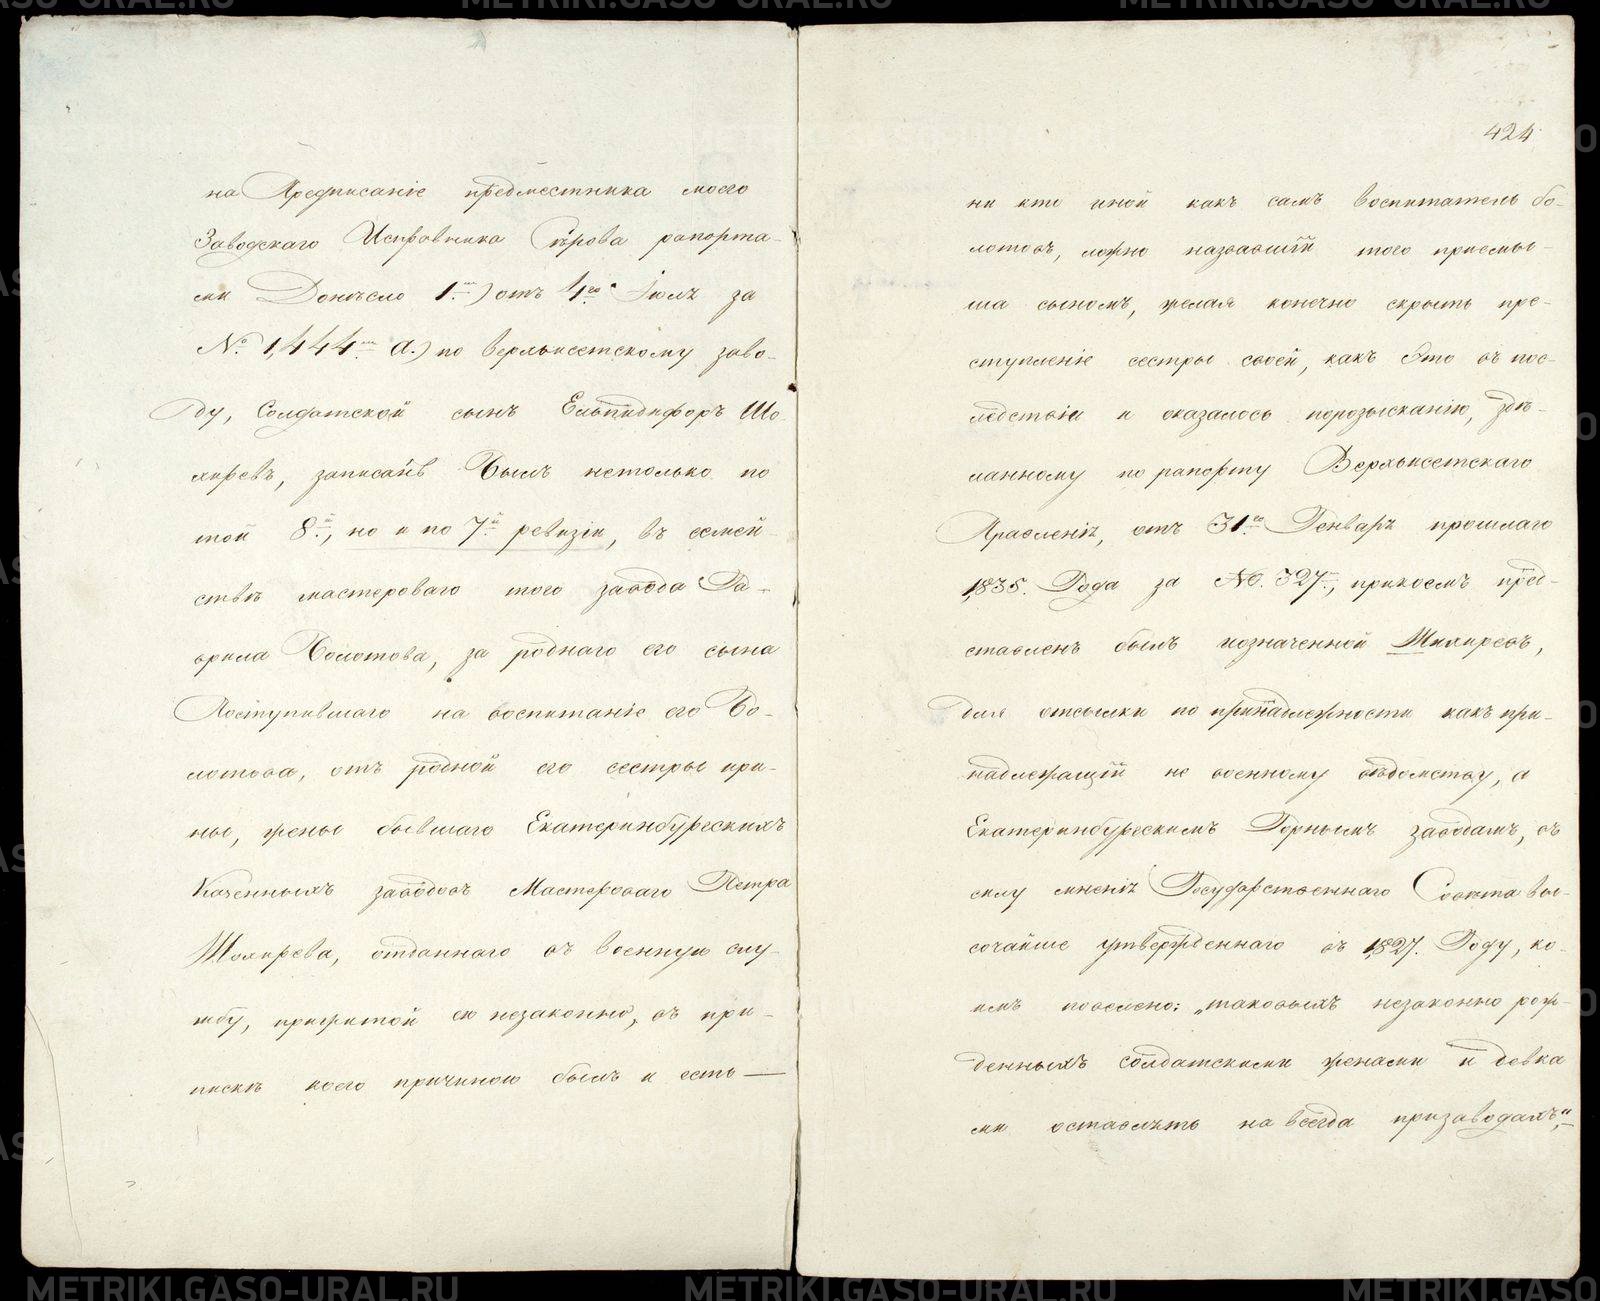 на Предписаніе предместника моего
Заводскаго Исправника Сѣрова рапорта-
ми Донѣсло 1.) отъ 4го Іюля за
№ 1,444м а.) по верхъисетскому заво-
ду, Солдатской сынъ Ельпидифоръ Шо-
хиревъ, записанъ Былъ нетолько по
той 8й, но и по 7й ревизіи, въ семей-
ствѣ мастероваго того завода Га-
врила Болотова, за роднаго его сына
Поступившаго на воспитаніе его Бо-
лотова, отъ родной его сестры Ири-
ны, жены бывшаго Екатеринбургскихъ
Казенныхъ заводовъ Мастероваго Петра
Шохирева, отданнаго въ военную слу-
жбу, прижитой ею незаконно, въ при-
пискѣ коего причиною былъ и есть —
424
ни кто иной какъ самъ воспитатель бо-
лотовъ, ложно назвавшій того приемы-
ша сыномъ, желая конечно скрыть пре-
ступленіе сестры своей, какъ Это въ пос-
ледствіи и оказалось порозысканію, здѣ-
ланному по рапорту Верхъисетскаго
Правленія, отъ 31го Генваря прошлаго
1835. Года за №. 327м, прикоемъ пред-
ставленъ былъ означенной Шихиревъ,
для отсылки по принадлежности какъ при-
надлежащій не военному ведомству, а
Екатеринбургскимъ Горнымъ заводамъ, въ
силу мненія Государственнаго Совѣта вы-
сочайше утвержденнаго въ 1827. Году, ко-
имъ повелено: „таковыхъ незаконно рож-
денныхъ солдатскими женами и девка
ми оставлять на всегда призаводахъ,“
METRIKI.GASO-URAL.RU